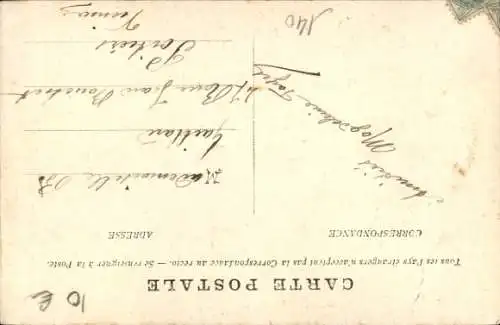 CARTE POSTALE
Tous les Pays étrangers n'acceptent pas la Correspondance au recto. — Se renseigner à la Poste.
CORRESPONDANCE
ADRESSE
Amitiés
Magdeleine
Mademoiselle
Jean Bouchet
Poitiers
Vienne
140
10 €